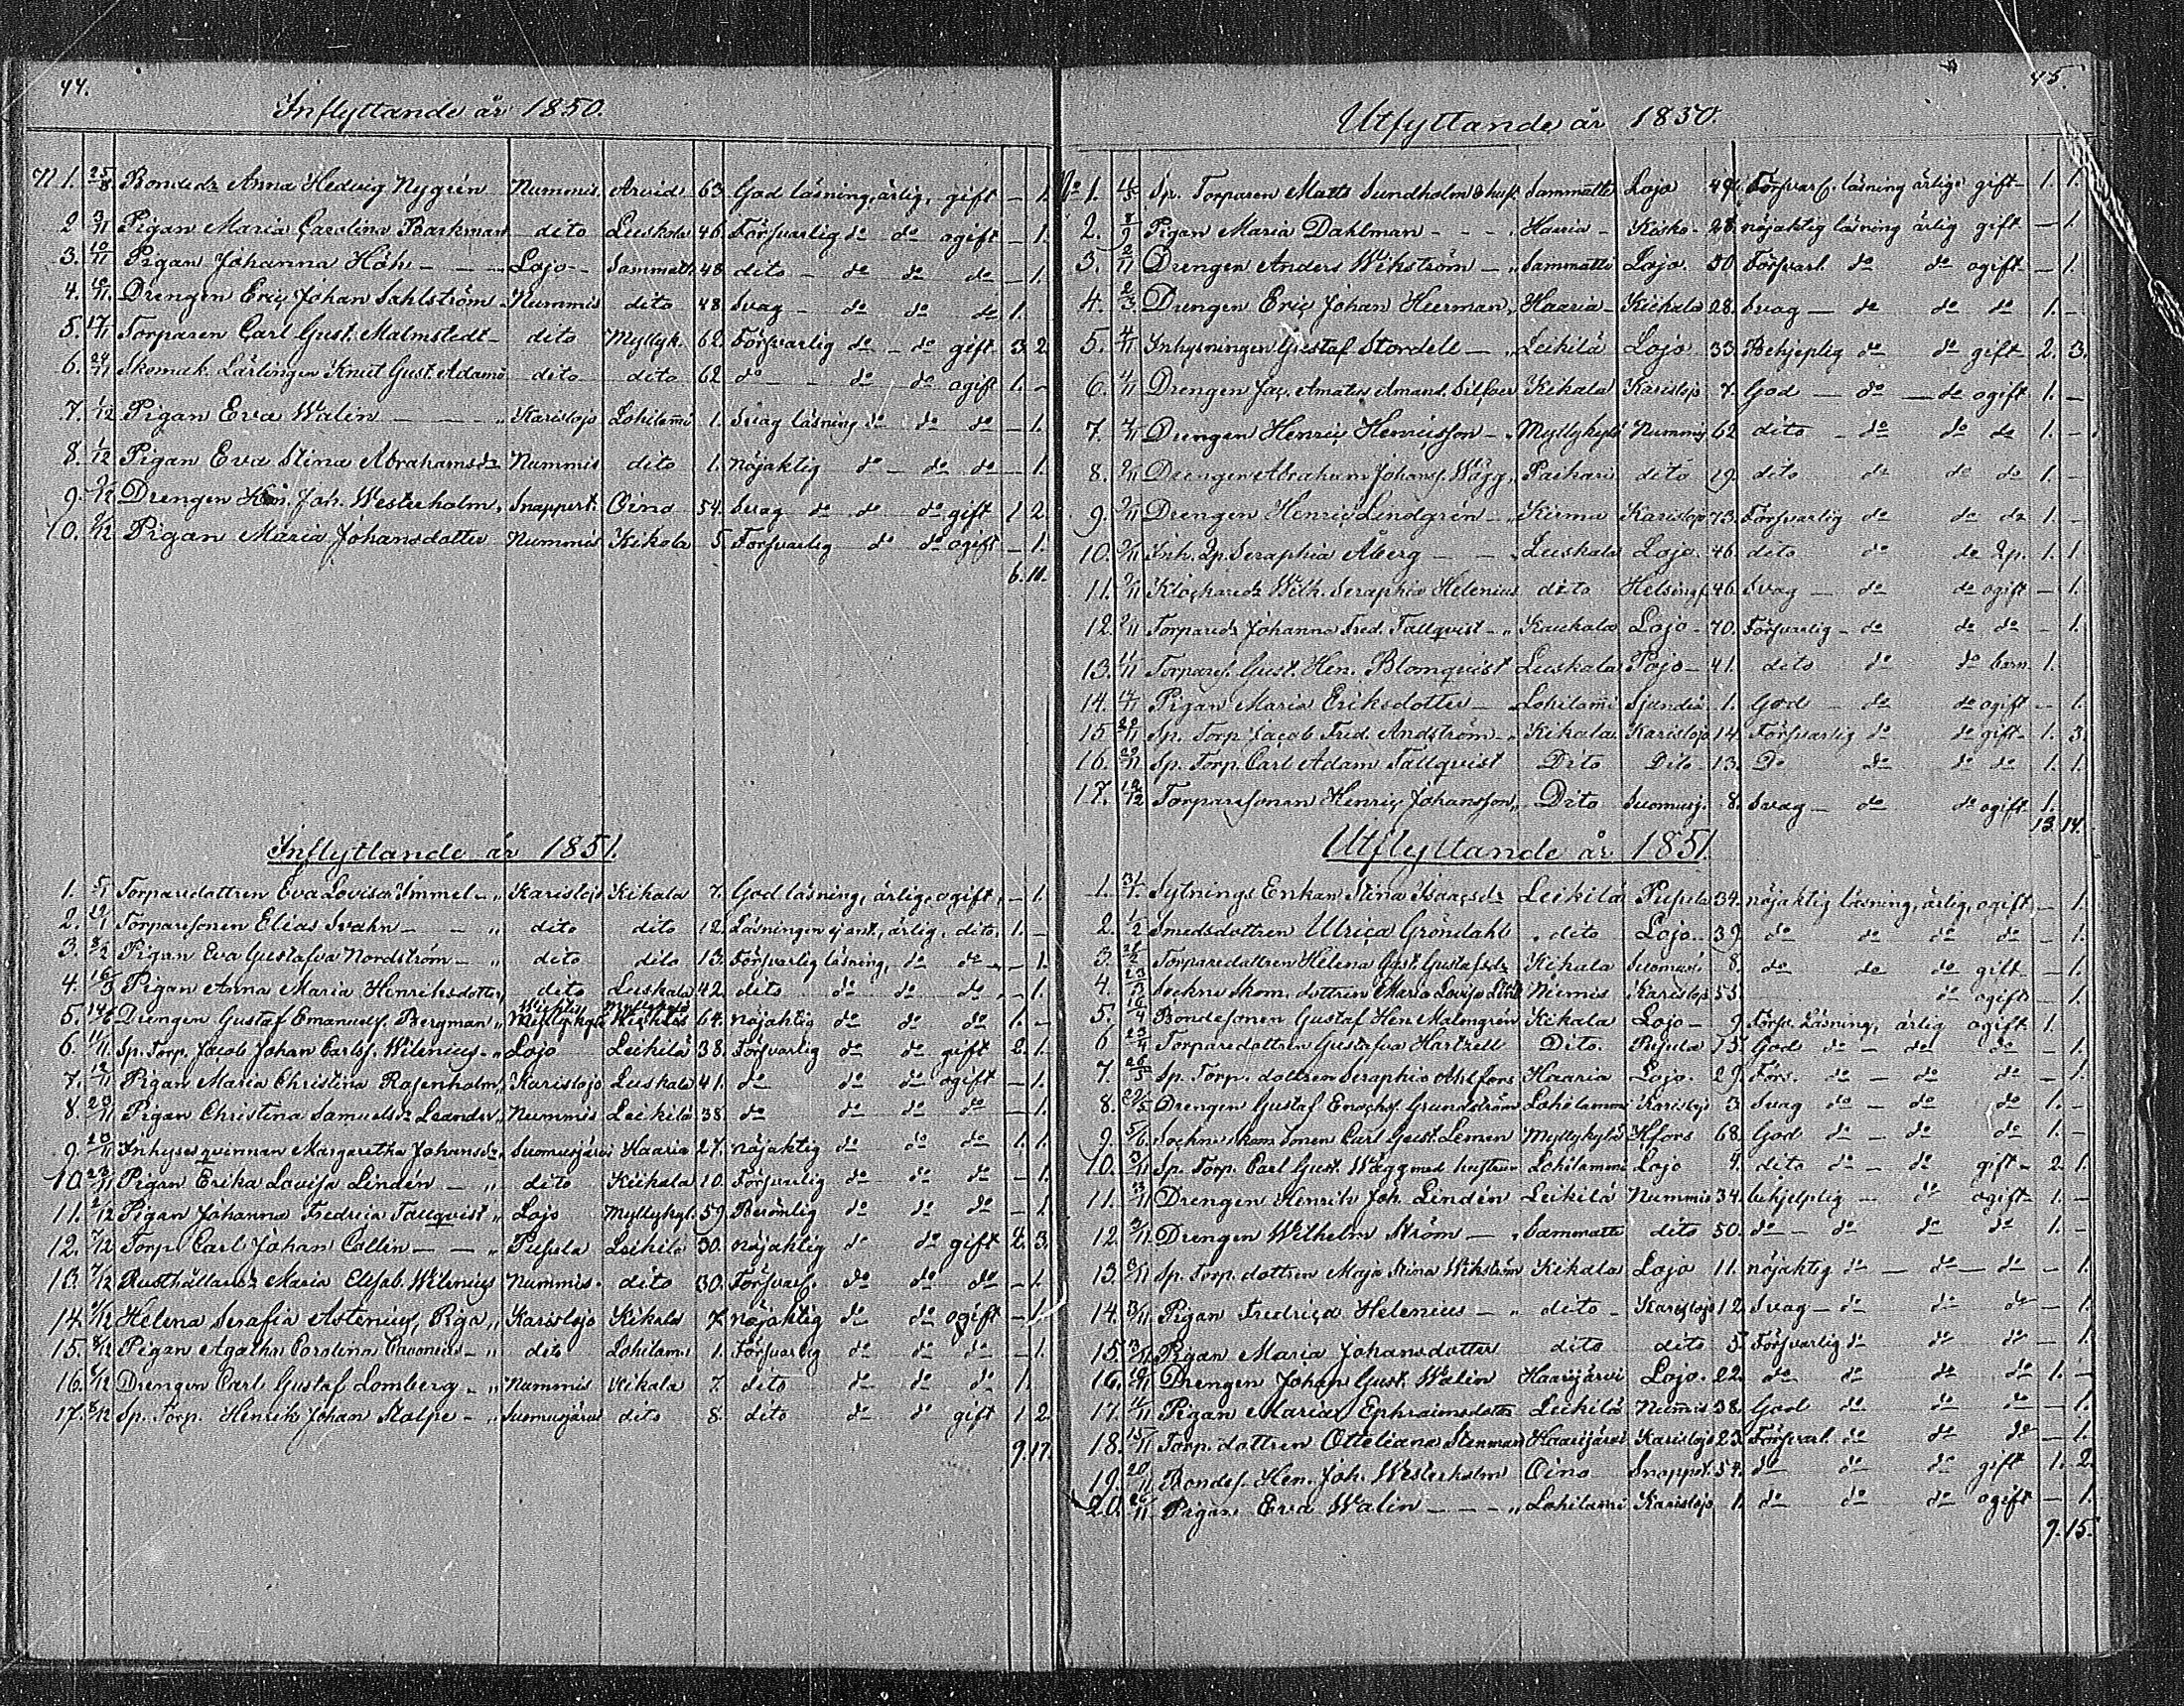 44.
Inflyttande år 1850.
N 1. 25/8 Bondedr Anna Hedvig Nygrén Nummis Arvid 63 God läsning, ärlig, gift - 1.
2 3/11 Pigan Maria Carolina Barkman dito Leuskala 46 Försvarlig do do ogift - 1.
3. 10/11 Pigan Johanna Höh - - - Lojo - Sammatti 48 dito - do do do - 1.
4. Drengen Eric Johan Sahlström - Nummis dito 48 Svag - do do do 1.
5. 17/11 Torparen Carl Gust. Malmstedt - dito Myllyk. 62 Försvarlig do - do gift 3 2
6. 24/11 Skomak. Lärlingen Knut Gust. Adams dito dito 62 do - - do do ogift 1. -
7. 1/12 Pigan Eva Walin - - - Karislojo Lohilami 1. Svag läsning do do do - 1.
8. 1/12 Pigan Eva Stina Abrahamsdr Nummis dito 1. nöjaktig do - do do - 1.
9. Drengen Joh. Westerholm, Snappert. Oino 54. Svag do do do gift 1 2.
10. Pigan Maria Johansdotter Nummis Kikala 5 Försvarlig do do ogift - 1.
6. 11.
Inflyttande år 1851.
1. 5/1 Torparedottren Eva Lovisa Immel - Karislojo Kikala 7. God läsning, ärlig, ogift, - 1.
2. Torparesonen Elias Svahn - - dito dito 12. Läsningen ej ant., ärlig, dito, 1. -
3. Pigan Eva Gustafva Nordström - dito dito 13. Försvarlig läsning, do do - - 1.
4. 16/3 Pigan Anna Maria Henriksdotter, dito Leuskala 42. dito do do do - 1.
5. Drengen Gustaf Emanuels. Bergman Wichtis Myllykylä 64. nöjaktig do do do 1. -
6. Sp. Torp. Jacob Johan Carlss. Wilenius - Lojo Leikilä 38. Försvarlig do do gift 2. 1.
7. 12/11 Pigan Maria Christina Rosenholm, Karislojo Leuskala 41. do do do ogift - 1.
8. 23/11 Pigan Christina Samuelsdr Leander, Nummis Leikilä 38 do do do do - 1.
9. 23/11 Inhysesqvinnan Margaretha Johansdr, Suomusjärvi Haaria 27. nöjaktig do do do 1. 1.
10. 23/11 Pigan Erika Lovisa Lindén - dito Kiikala 10. Försvarlig do do do - 1.
11. Pigan Johanna Fredrica Tallqvist Lojo Myllykyl. 59. Berömlig do do do - 1.
12. Torp. Carl Johan Collin - - Pusula Leikilä 30. nöjaktig do do gift 2. 3.
13. Rusthållaredr Maria Elisab. Wilenius Nummis. dito 30. Försvarl. do do do - 1.
14. Helena Serafia Astenius, Piga, Karislojo Kikala 7. nöjaktig do do ogift - 1.
15. Pigan Agatha Carolina dito Lohilami 1. Försvarlig do do do - 1.
16. Drengen Carl Gustaf Lomberg - Nummis Kikala 7. dito do do do 1.
17. Sp. Torp. Henrik Johan Stolpe - Suomusjärvi dito 8. dito do do gift 1. 2.
9. 17.
45.
Utflyttande år 1850.
No 1. Sp. Torparen Matts Sundholm & hust. Sammatti Lojo 49. Försvarl. läsning ärlig gift - 1. 1.
2. 8/9 Pigan Maria Dahlman - - - Haaria - Kisko - 28. nöjaktig läsning ärlig gift - 1.
3. 2/11 Drengen Anders Wikström - Sammatti Lojo. 50 Försvarl. do do ogift - 1.
4. Drengen Eric Johan Heerman, Haaria - Kiikala 28. Svag - do do do 1. -
5. 4/11 Inhysningen Gustaf Stordell - Leikilä Lojo. 33. Behjeplig do do gift - 2. 3.
6. 4/11 Drengen Jac. Amatus Amand. Silfver Kikala Karislojo 7. God - do - do ogift 1. -
7. Drengen Henric Henricsson - Myllykylä Nummis 62 dito - do do do 1. -
8. Drengen Abraham Johans. Wägg, Paikari dito 19. dito do do do 1. -
9. Drengen Henric Lindgrén - Karislojo 73. Försvarlig do do do 1. -
10. Inh. Seraphia Åberg - - Leuskala Lojo. 46 dito do do 1. 1.
11. Klockaredr Wilh. Seraphia Helenius dito Helsingf. 46. Svag - do do ogift - 1.
12. Torparedr Johanna Fred. Tallqvist - Kaukala Lojo - 70. Försvarlig - do do do - 1.
13. 11/11 Torpares. Gust. Hen. Blomqvist Leuskala Pojo - 41. dito do do barn 1.
14. Pigan Maria Eriksdotter - Lohilami Sjundeå 1. God - do do ogift - 1.
15. Sp. Torp. Jacob Fred. Andström - Kikala Karislojo 14. Försvarlig do do gift - 1. 3.
16. Sp. Torp. Carl Adam Tallqvist Dito Dito. 13. Do do do do 1. 1.
17. Torparesonen Henric Johansson, Dito Suomusj. 8. Svag - do do ogift 1.
13. 14.
Utflyttande år 1851.
1. Sytnings Enkan Stina Isaacsdr Leikilä Pusula 34. nöjaktig läsning, ärlig, ogift - 1.
2. 1/2 Smedsdottren Ulrica Gröndahl dito Lojo. 39. do do do do - 1.
3. Torparedottren Helena Gust. Gustafsdr Kikala Suomusj. 8. do do do gift - 1.
4. Sockne Skom. dottren Maria Lovisa Niemis Karislojo 55. do ogift - 1.
5. 16/4 Bondesonen Gustaf Hen. Malmgrén Kikala Lojo - 9. Försv. Läsning, ärlig ogift 1.
6. Torparedottren Gustafva Hartzell Dito. Pusula 15. God do - do do - 1.
7. Sp. Torp. dottren Seraphia Ahlfors Haaria Lojo. 29. Förs. do - do do - 1.
8. Drengen Gustaf Enochs. Grundström Lohilammi Karislojo 3. Svag do - do do 1. -
9. 5/6 Sockne skom. Sonen Carl Gust. Lemen Myllykylä Hfors 68. God do - do do 1. -
10. Sp. Torp. Carl Gust. Wägg med hustrun Lohilammi Lojo 4. dito do - do gift - 2. 1.
11. Drengen Henrik Joh. Lindén Leikilä Nummis 34. behjelplig - do ogift 1. -
12. Drengen Wilhelm Ström - Sammatti dito 50. do - do do do 1. -
13. Sp. Torp. dottren Maja Stina Wikström Kikala Lojo 11. nöjaktig do - do - do - 1.
14. 3/11 Pigan Fredrica Helenius - dito - Karislojo 12. Svag - do do do - 1.
15. Pigan Maria Johansdotter dito dito 5. Försvarlig do do do - 1.
16. Drengen Johan Gust. Walin Haarijärvi Lojo. 22. do do do do 1. -
17. Pigan Maria Ephraimsdotter Leikilä Nummis 38. God do do do - 1.
18. 15/11 Torp. dottren Otteliana Stenman Haarijärvi Karislojo 23. Försvarl. do do do - 1.
19. 20/11 Bondes. Hen. Joh. Westerholm Oino Snappt. 54. do do do gift 1. 2.
20. Pigan Eva Walin - - - Lohilami Karislojo 1. do do do ogift - 1.
9. 15.